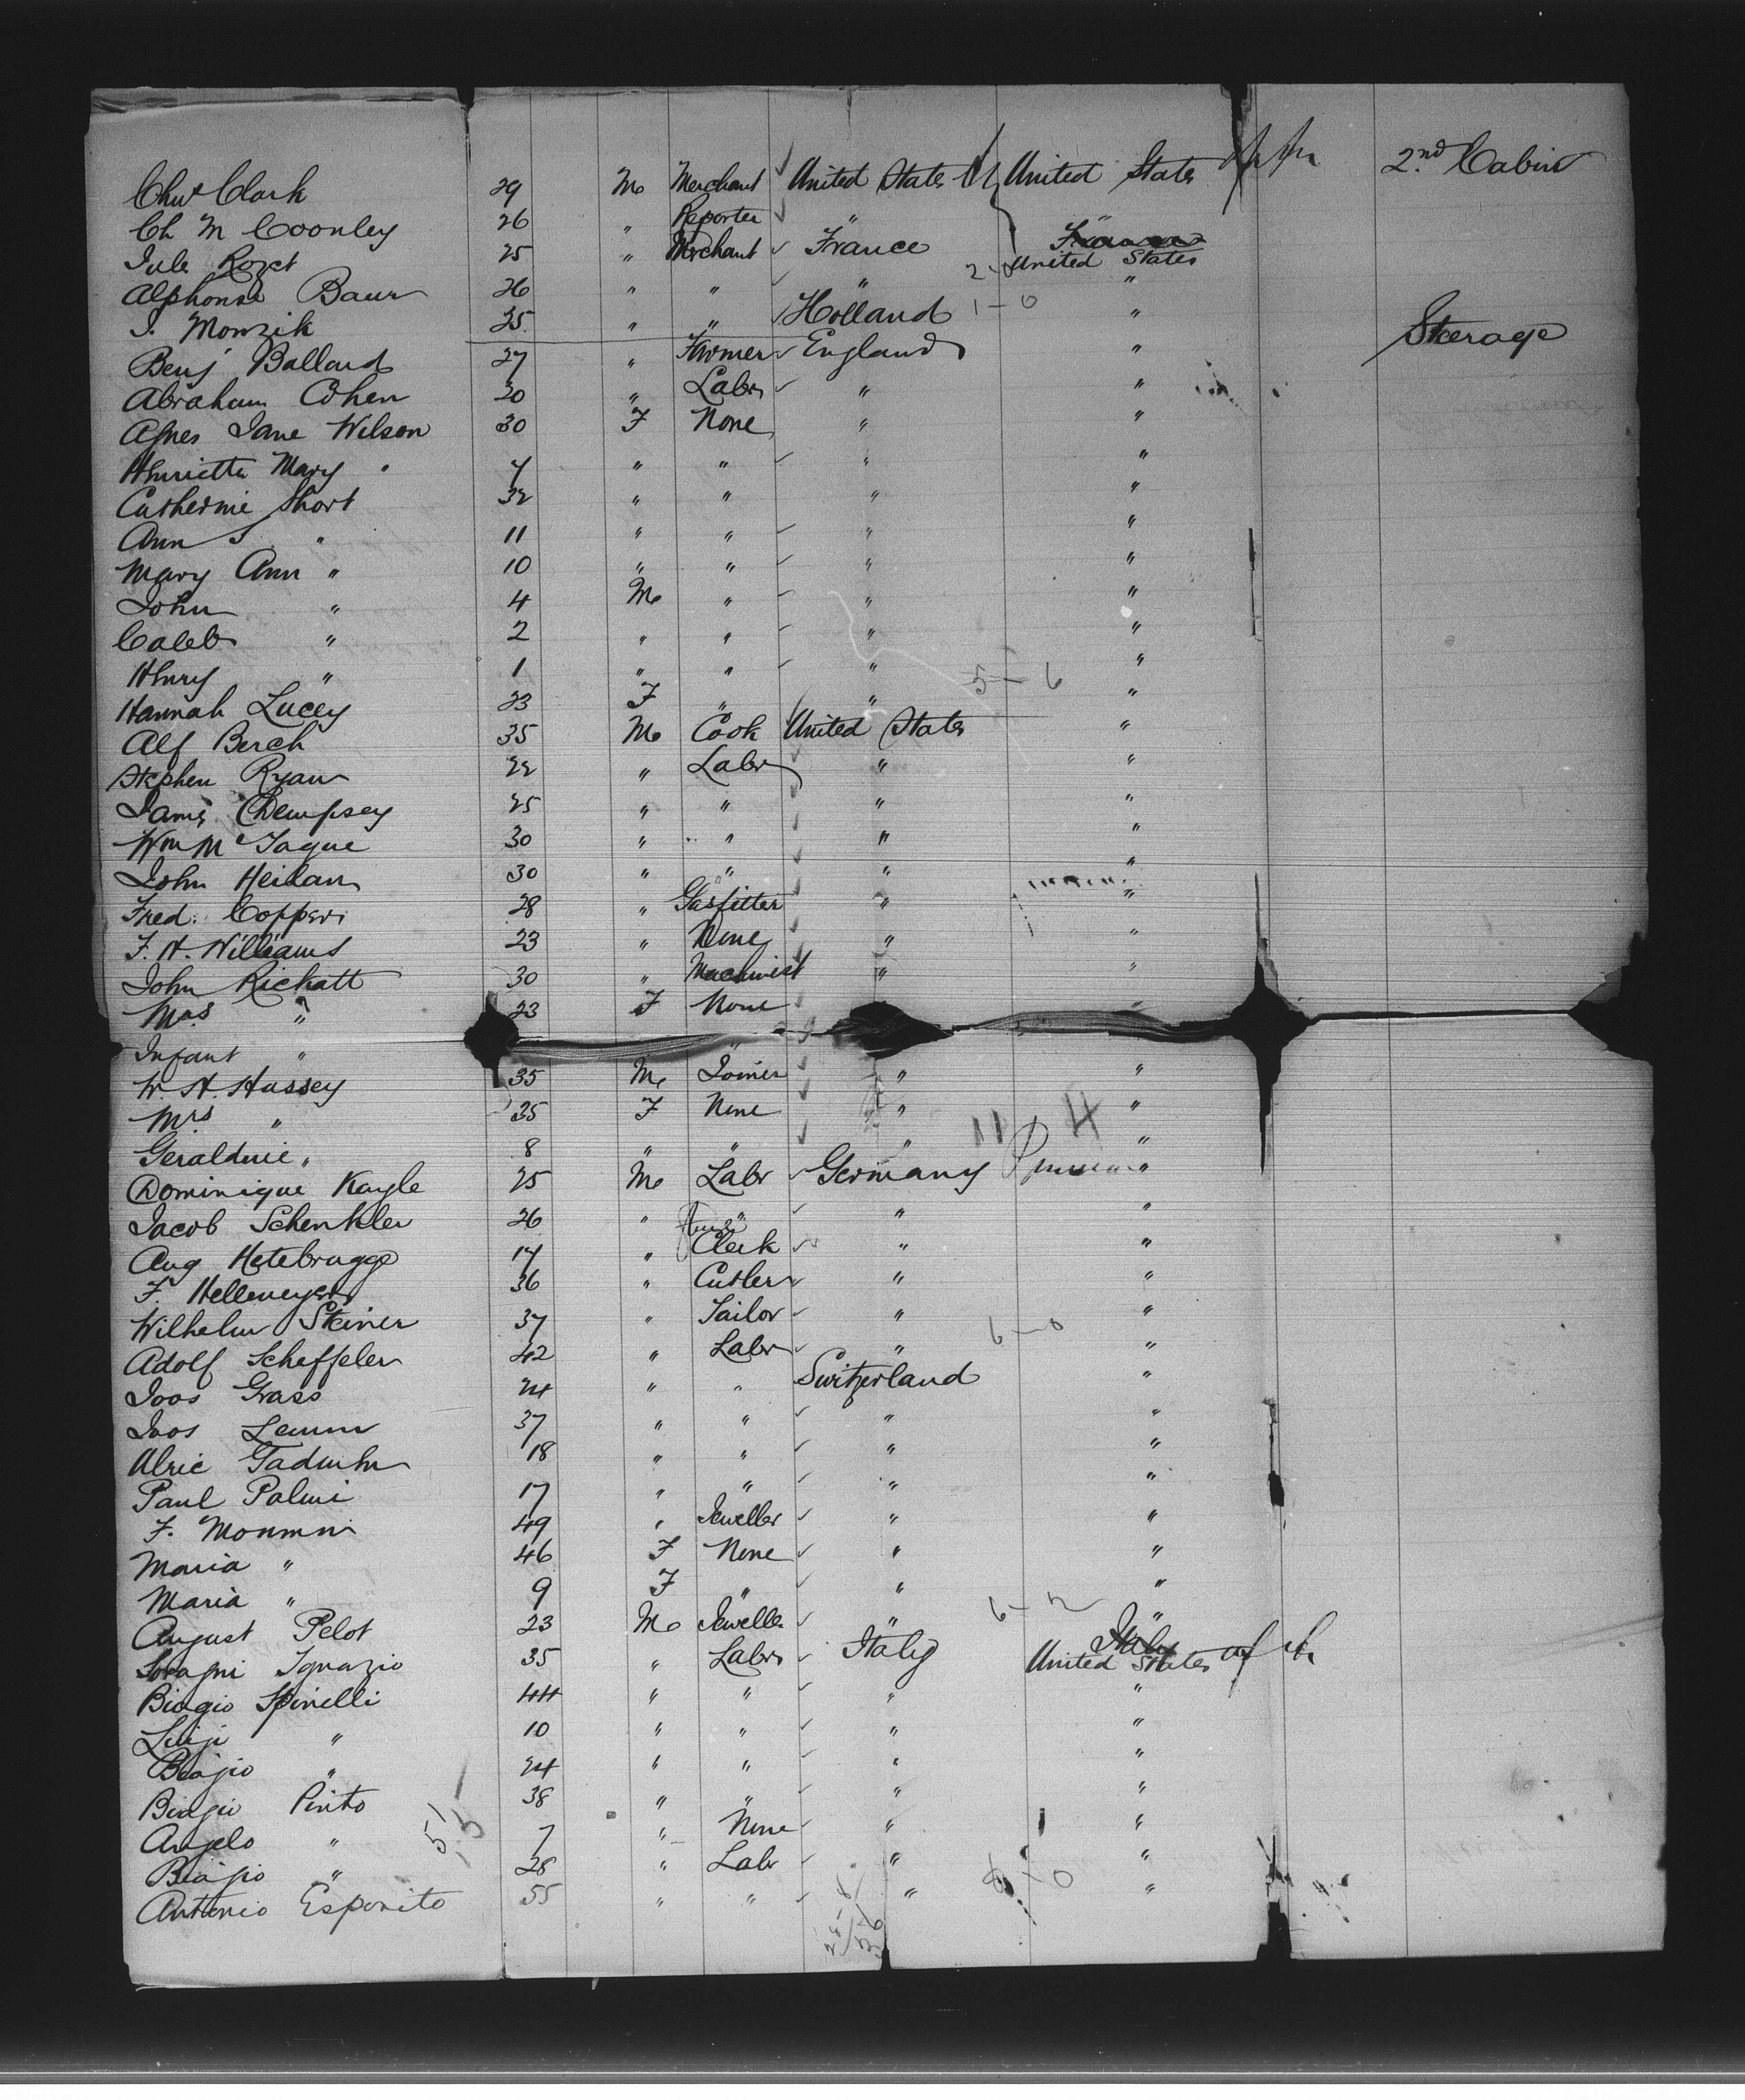 Chas Clark 29 M Merchant United States United States 2nd Cabin
Ch M Coonley 26 " Reporter " "
Jule Rozet 25 " Merchant France France United States
Alphonse Baur 26 " " " "
J. Monzik 35 " " Holland 1-0 "
Benj Ballard 27 " Farmer England " Steerage
Abraham Cohen 20 " Labr " "
Agnes Jane Wilson 30 F None " "
Henrietta Mary " 7 " " " "
Catherine Short 32 " " " "
Ann S " 11 " " " "
Mary Ann " 10 " " " "
John " 4 M " " "
Caleb " 2 " " " "
Henry " 1 " " " "
Hannah Lucey 23 F " " 5-6 "
Alf Berch 35 M Cook United States "
Stephen Ryan 22 " Labr " "
James Dempsey 25 " " " "
Wm McTague 30 " " " "
John Heilan 30 " " " "
Fred. Copper 28 " Gasfitter " "
F. H. Williams 23 " None " "
John Rickatt 30 " Machinist " "
Mrs " 23 F None "
Infant "
W. H. Hussey 35 M Joiner " "
Mrs " 35 F None " 11 4 "
Geraldine " 8 " " " "
Dominique Kayle 25 M Labr Germany "
Jacob Schenkler 26 " " " "
Aug Hetebrugge 17 " Clerk " "
F. Hellemeyer 36 " Cutler " "
Wilhelm Steiner 37 " Tailor " "
Adolf Scheffeler 42 " Labr " 6-0 "
Joos Grass 24 " " Switzerland "
Joos Lemm 37 " " " "
Ulric 18 " " " "
Paul Palmi 17 " " " "
F. 49 " Jeweller " "
Maria " 46 F None " "
Maria " 9 F " " "
August Pelot 23 M Jeweller " 6-2 "
Ignazio 35 " Labr Italy Italy United States
Biagio Spinelli 44 " " " "
Luigi " 10 " " " "
Biagio " 24 " " " "
Biagio Pinto 38 " " " "
Angelo " 51 7 " None " "
Biagio " 28 " Labr " "
Antonio Esposito 55 " " " "